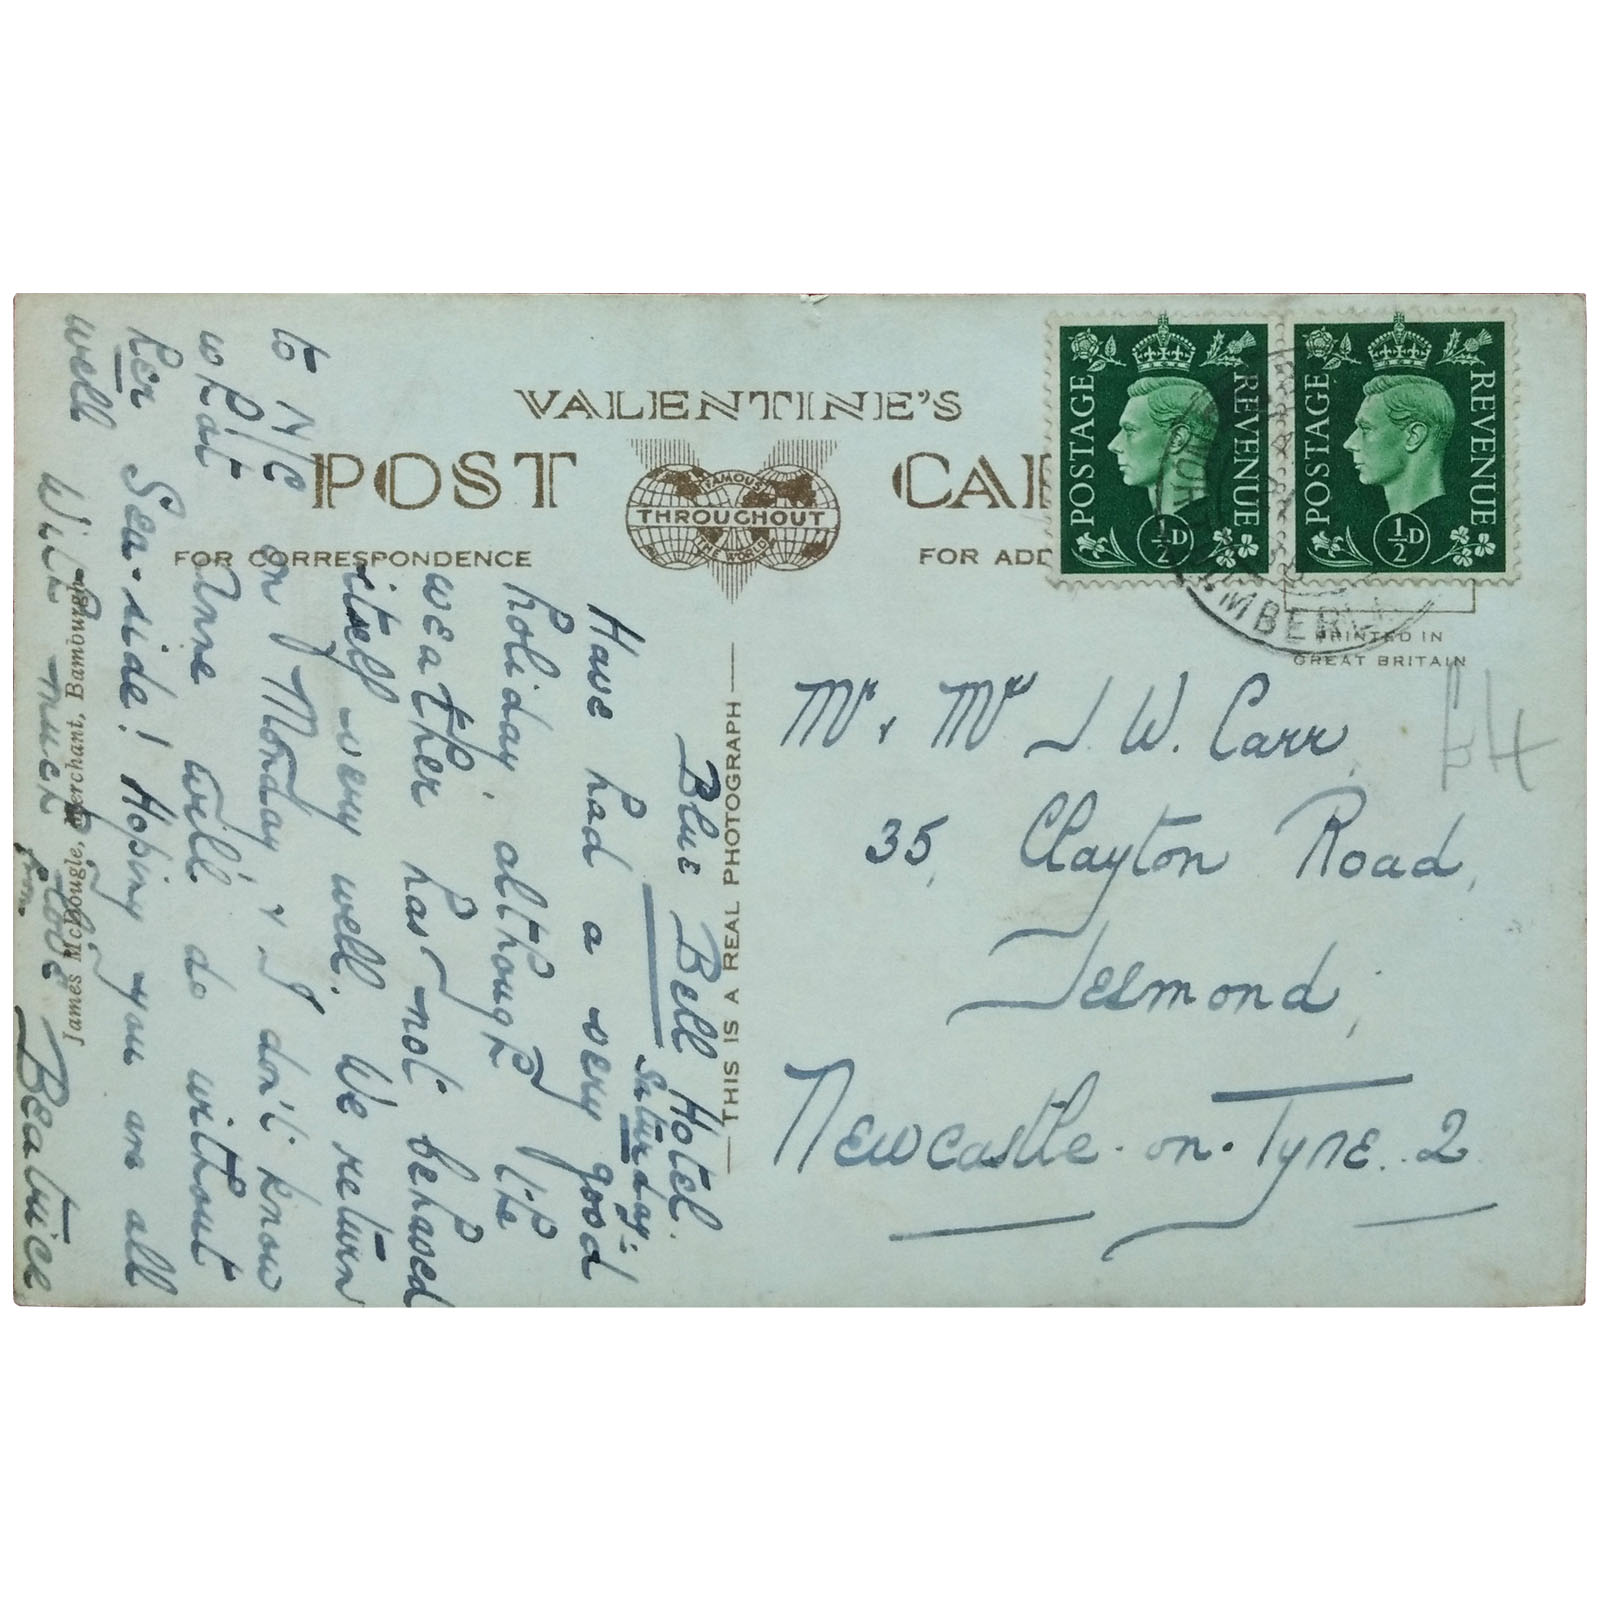 VALENTINE'S
POST CAR
FAMOUS
THROUGHOUT
THE WORLD
FOR CORRESPONDENCE
FOR ADD
POSTAGE REVENUE
½D
POSTAGE REVENUE
½D
PRINTED IN
GREAT BRITAIN
THIS IS A REAL PHOTOGRAPH
James McDougle, Merchant, Bamburgh
Blue Bell Hotel.
Saturday:-
Have had a very good
holiday, although the
weather has not behaved
itself very well. We return
to N/C on Monday & I don't know
what Anne will do without
her Sea-side! Hoping you are all
well With much love
from Beatrice
Mr & Mrs J. W. Carr,
35, Clayton Road,
Jesmond,
Newcastle-on-Tyne. 2
£4